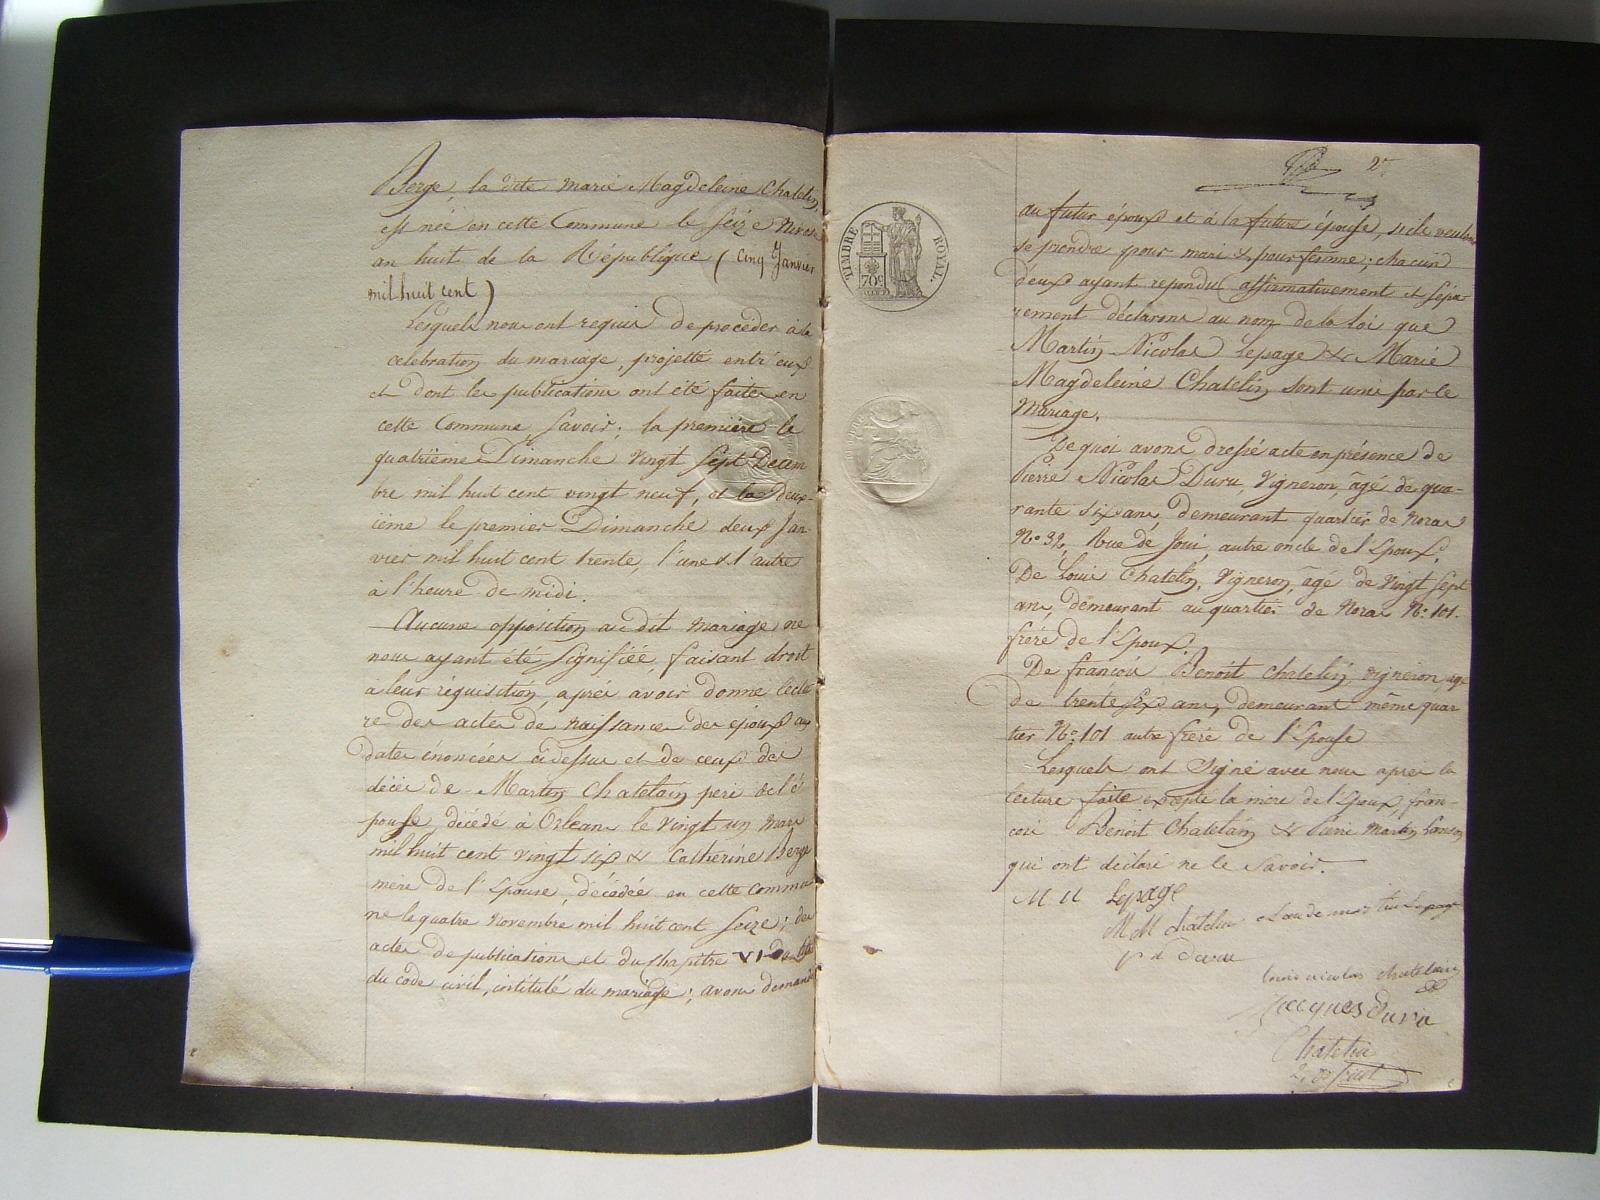 Berge, la dite Marie Magdeleine Chatelin,
est née en cette Commune le Seize Nivose
an huit de la République (cinq Janvier
mil huit cent)
Lesquels nous ont requis de procéder à la
celebration du mariage, projetté entr'eux
et dont les publications ont été faites en
cette Commune Savoir; la première le
quatrième Dimanche vingt Sept Decem
bre mil huit cent vingt neuf, et la deux-
ième le premier Dimanche deux Jan-
vier mil huit cent trente, l'une & l'autre
à l'heure de midi.
Aucune opposition au dit mariage ne
nous ayant été Signifiée, faisant droit
à leur réquisition, après avoir donné lectu
re des actes de naissances des époux aux
dates énoncées ci dessus et de ceux des
décès de Martin Chatelain pere de l'é
pouse, décédé à Orléans le vingt un mars
mil huit cent vingt six & Catherine Berge
mère de l'Epouse, décédée en cette commu
ne le quatre Novembre mil huit cent Seize; des
actes de publications et du chapitre VI du titre
du code civil, intitulé du mariage; avons demandé
TIMBRE ROYAL.
70c
2
au futur époux et à la future épouse, s'ils veulent
se prendre pour mari & pour femme; chacun
d'eux ayant repondu affirmativement et sépa-
rement déclarons au nom de la loi que
Martin Nicolas Lepage & Marie
Magdeleine Chatelin sont unis par le
Mariage.
De quoi avons dressé acte en présence de
Pierre Nicolas Duru, Vigneron, âgé de qua-
rante six ans, demeurant quartier de Noras
No 32, Rue de Joui, autre oncle de l'Epoux,
De Louis Chatelin, Vigneron, âgé de vingt sept
ans, demeurant au quartier de Noras No 101.
frère de l'Epoux.
De françois Benoit Chatelin, vigneron, age
de trente six ans, demeurant même quar
tier No 101 autre frère de l'Epouse
Lesquels ont Signé avec nous après la
lecture faite excepté la mère de l'Epoux, fran-
cois Benoit Chatelain & Pierre Martin
qui ont déclaré ne le Savoir.
M N Lepage
M M chatelin Claude martin Lepage
P N Duru
louis nicolas chatelain
Jacques Duru
Chatelin